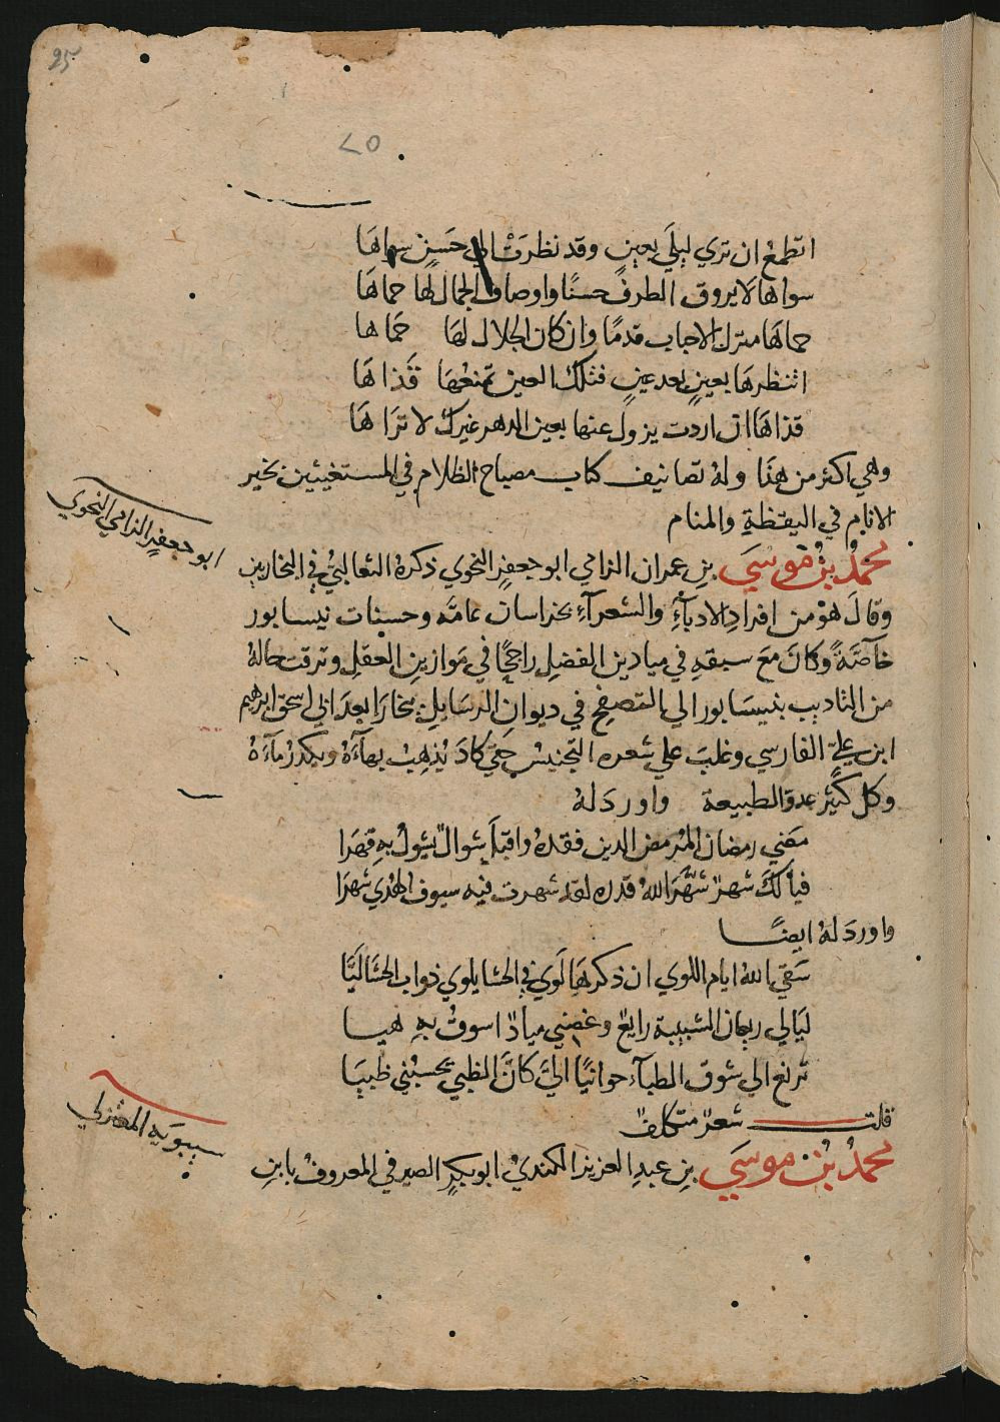 25
٢٥
اتطمع ان تري ليلَي بعينٍ وقد نظرَتْ الي حَسَنٍ سواهَا
سواها لا يروق الطرفَ حسنًا واوصاف الجمال لها حماهَا
حماهَا منزل الاحباب قدمًا وان كان الجلال لهَا حمَاها
اتنظرهَا بعينٍ بعد عينٍ فتلك العين تمنعُهَا قَذاهَا
قذاهَا ان اردت يزول عنها بعين الدهر غيرك لا ترَاهَا
وهي اكثر من هذَا ولهُ تصانيف كتاب مصباح الظلام في المستغيثين بخير
الانام في اليقظةِ والمنام
ابو جعفرٍ الزامي النحوي
محمدُ بنُ مُوسَي بنِ عمران الزامي ابو جعفرٍ النحوي ذكرهُ الثعالبيُّ في البخاريين
وقالَ هوَ من افرادِ الادبآءِ والشعرآءِ بخراسان عامَّه وحسنات نيسابور
خآصَّةً وكانَ معَ سبقهِ في ميادين الفضلِ راجحًا في مَوازينِ العقلِ وترقت حالهُ
من التاديب بنيسَابور الي التصفح في ديوان الرسَايل ببخارَا بعدَ ابي اسحق ابرهيم
ابن عليّ الفارسي وغلبَ علي شعره التجنيس حَتّي كادَ يُذهِبُ بهآءَهُ ويكدرُ مآءَهُ
وكل كثيرٍ عدو الطبيعة واوردَ لهُ
مضَي رمضان المرمض الدين فقدهُ واقبلَ شوالٌ يشولُ بهِ قهرَا
فيا لكَ شهرٌ شهَّرَ اللهُ قدره لقد شهرت فيه سيوف الهدي شهرَا
واوردَ لهُ ايضًا
سَقي اللهُ ايام اللوي ان ذكرهَا لَوي في الحشا يلوي ذواب الحشَا ليَّا
ليَالي ريعان الشبيبة رايعٌ وغصني ميادٌ اسوقُ بهِ هيا
تريعُ الي شوق الظبآء حوانيًا اليَّ كانَّ الظبي يحسبُني ظبيَا
قلت شعرٌ متكلفٌ
سيبوَيه المعتزلي
محمدُ بنُ موسَي بنِ عبدِ العزيز الكنديُ ابو بكرٍ الصيرفي المعروفُ بابنِ